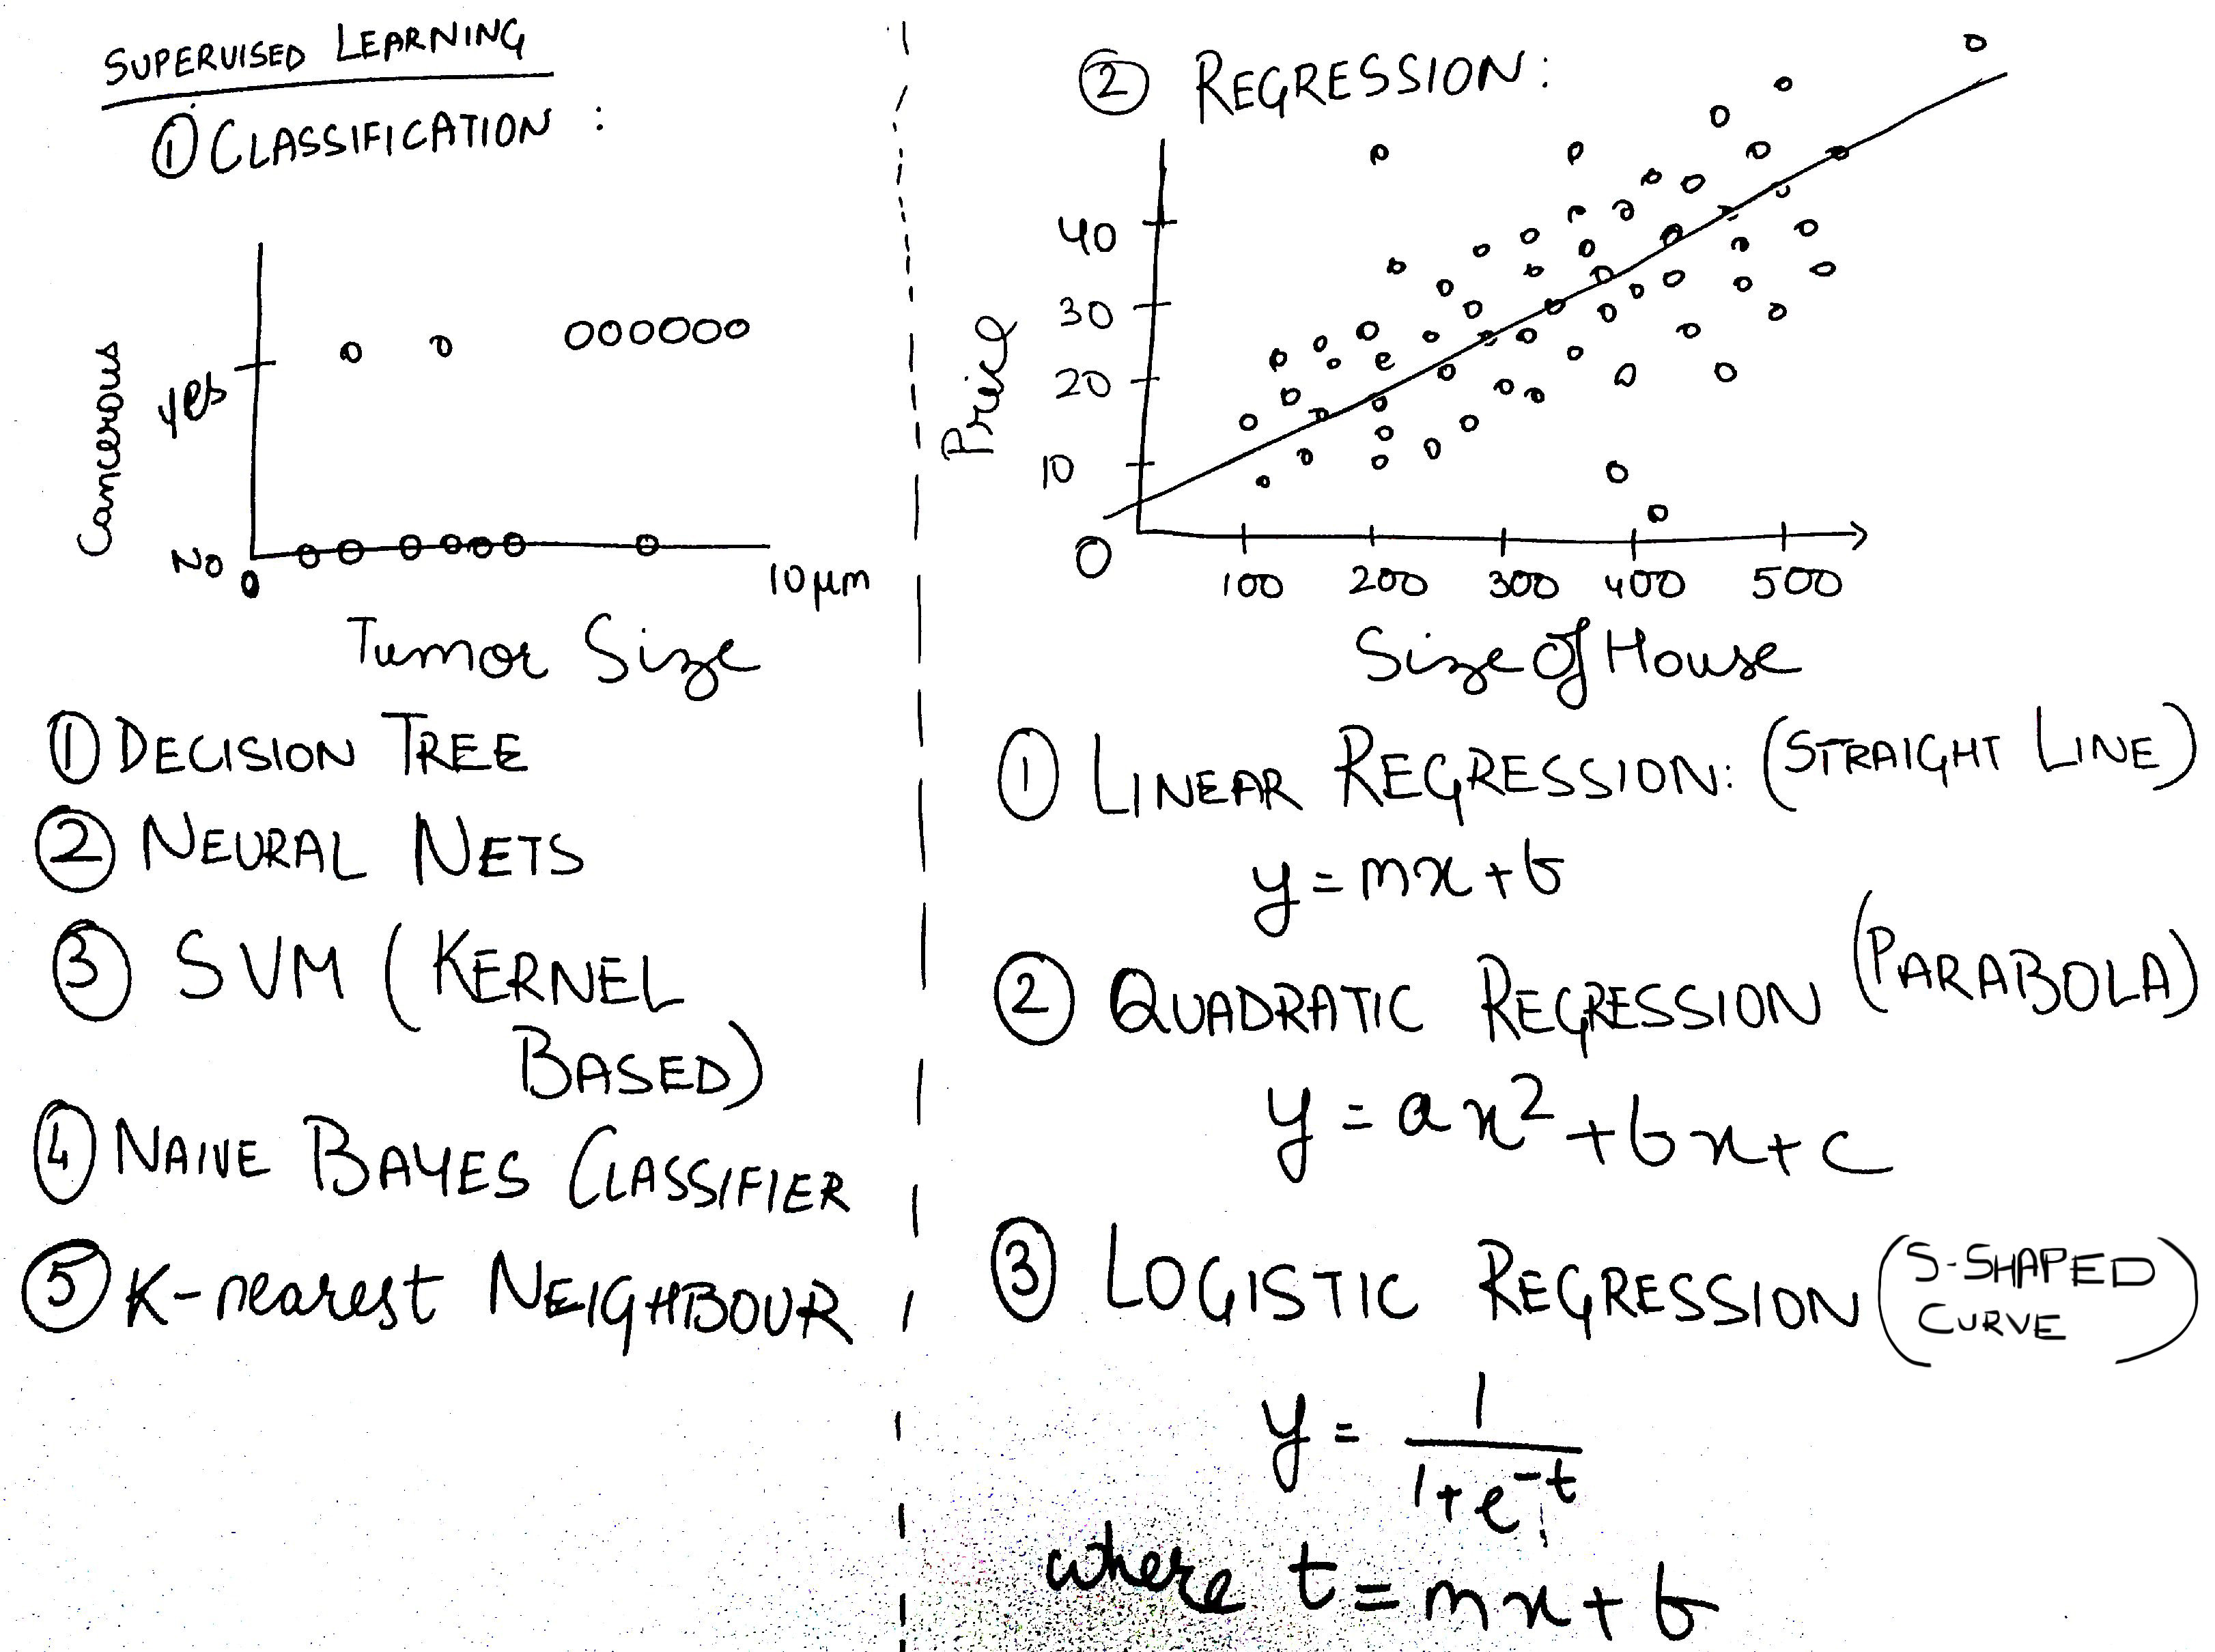 SUPERVISED LEARNING
① CLASSIFICATION :
Cancerous
yes
No
0
10 μm
Tumor Size
① DECISION TREE
② NEURAL NETS
③ SVM (KERNEL
BASED)
④ NAIVE BAYES CLASSIFIER
⑤ K-nearest NEIGHBOUR
② REGRESSION:
Price
40
30
20
10
0
100 200 300 400 500
Size Of House
① LINEAR REGRESSION: (STRAIGHT LINE)
y = mx + b
② QUADRATIC REGRESSION (PARABOLA)
y = ax² + bx + c
③ LOGISTIC REGRESSION (S-SHAPED
CURVE)
y = 1
1+e^-t
where t = mx + b